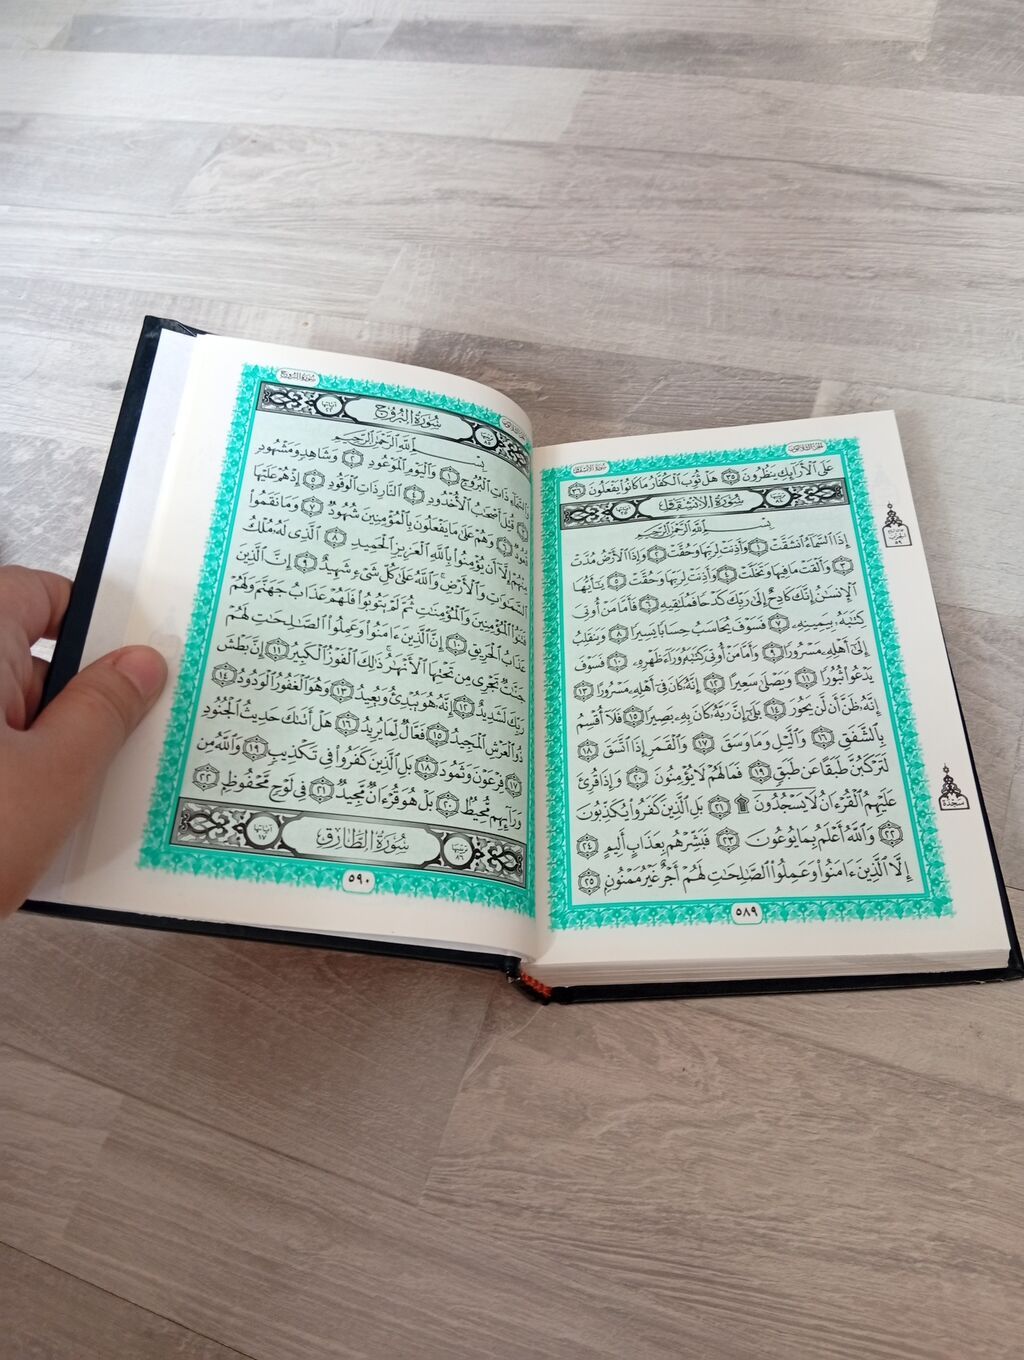 سُورَةُ الانشِقَاقِ
عَلَى ٱلْأَرَآئِكِ يَنظُرُونَ ٣٥ هَلْ ثُوِّبَ ٱلْكُفَّارُ مَا كَانُوا۟ يَفْعَلُونَ ٣٦
سُورَةُ الانشِقَاقِ
بِسْمِ ٱللَّهِ ٱلرَّحْمَٰنِ ٱلرَّحِيمِ
إِذَا ٱلسَّمَآءُ ٱنشَقَّتْ ١ وَأَذِنَتْ لِرَبِّهَا وَحُقَّتْ ٢ وَإِذَا ٱلْأَرْضُ مُدَّتْ
٣ وَأَلْقَتْ مَا فِيهَا وَتَخَلَّتْ ٤ وَأَذِنَتْ لِرَبِّهَا وَحُقَّتْ ٥ يَٰٓأَيُّهَا
ٱلْإِنسَٰنُ إِنَّكَ كَادِحٌ إِلَىٰ رَبِّكَ كَدْحًا فَمُلَٰقِيهِ ٦ فَأَمَّا مَنْ أُوتِىَ
كِتَٰبَهُۥ بِيَمِينِهِۦ ٧ فَسَوْفَ يُحَاسَبُ حِسَابًا يَسِيرًا ٨ وَيَنقَلِبُ
إِلَىٰٓ أَهْلِهِۦ مَسْرُورًا ٩ وَأَمَّا مَنْ أُوتِىَ كِتَٰبَهُۥ وَرَآءَ ظَهْرِهِۦ ١٠ فَسَوْفَ
يَدْعُوا۟ ثُبُورًا ١١ وَيَصْلَىٰ سَعِيرًا ١٢ إِنَّهُۥ كَانَ فِىٓ أَهْلِهِۦ مَسْرُورًا ١٣
إِنَّهُۥ ظَنَّ أَن لَّن يَحُورَ ١٤ بَلَىٰٓ إِنَّ رَبَّهُۥ كَانَ بِهِۦ بَصِيرًا ١٥ فَلَآ أُقْسِمُ
بِٱلشَّفَقِ ١٦ وَٱلَّيْلِ وَمَا وَسَقَ ١٧ وَٱلْقَمَرِ إِذَا ٱتَّسَقَ ١٨
لَتَرْكَبُنَّ طَبَقًا عَن طَبَقٍ ١٩ فَمَا لَهُمْ لَا يُؤْمِنُونَ ٢٠ وَإِذَا قُرِئَ
عَلَيْهِمُ ٱلْقُرْءَانُ لَا يَسْجُدُونَ ۩ ٢١ بَلِ ٱلَّذِينَ كَفَرُوا۟ يُكَذِّبُونَ
٢٢ وَٱللَّهُ أَعْلَمُ بِمَا يُوعُونَ ٢٣ فَبَشِّرْهُم بِعَذَابٍ أَلِيمٍ ٢٤
إِلَّا ٱلَّذِينَ ءَامَنُوا۟ وَعَمِلُوا۟ ٱلصَّٰلِحَٰتِ لَهُمْ أَجْرٌ غَيْرُ مَمْنُونٍ ٢٥
٥٨٩
الحزب
٥٩
سجدة
سُورَةُ البُرُوجِ
آياتها ٢٢
سُورَةُ البُرُوجِ
بِسْمِ ٱللَّهِ ٱلرَّحْمَٰنِ ٱلرَّحِيمِ
ذَاتِ ٱلْبُرُوجِ ١ وَٱلْيَوْمِ ٱلْمَوْعُودِ ٢ وَشَاهِدٍ وَمَشْهُودٍ
٣ قُتِلَ أَصْحَٰبُ ٱلْأُخْدُودِ ٤ ٱلنَّارِ ذَاتِ ٱلْوَقُودِ ٥ إِذْ هُمْ عَلَيْهَا
قُعُودٌ ٦ وَهُمْ عَلَىٰ مَا يَفْعَلُونَ بِٱلْمُؤْمِنِينَ شُهُودٌ ٧ وَمَا نَقَمُوا۟
مِنْهُمْ إِلَّآ أَن يُؤْمِنُوا۟ بِٱللَّهِ ٱلْعَزِيزِ ٱلْحَمِيدِ ٨ ٱلَّذِى لَهُۥ مُلْكُ
ٱلسَّمَٰوَٰتِ وَٱلْأَرْضِ ۚ وَٱللَّهُ عَلَىٰ كُلِّ شَىْءٍ شَهِيدٌ ٩ إِنَّ ٱلَّذِينَ
فَتَنُوا۟ ٱلْمُؤْمِنِينَ وَٱلْمُؤْمِنَٰتِ ثُمَّ لَمْ يَتُوبُوا۟ فَلَهُمْ عَذَابُ جَهَنَّمَ وَلَهُمْ
عَذَابُ ٱلْحَرِيقِ ١٠ إِنَّ ٱلَّذِينَ ءَامَنُوا۟ وَعَمِلُوا۟ ٱلصَّٰلِحَٰتِ لَهُمْ
جَنَّٰتٌ تَجْرِى مِن تَحْتِهَا ٱلْأَنْهَٰرُ ۚ ذَٰلِكَ ٱلْفَوْزُ ٱلْكَبِيرُ ١١ إِنَّ بَطْشَ
رَبِّكَ لَشَدِيدٌ ١٢ إِنَّهُۥ هُوَ يُبْدِئُ وَيُعِيدُ ١٣ وَهُوَ ٱلْغَفُورُ ٱلْوَدُودُ ١٤
ذُو ٱلْعَرْشِ ٱلْمَجِيدُ ١٥ فَعَّالٌ لِّمَا يُرِيدُ ١٦ هَلْ أَتَىٰكَ حَدِيثُ ٱلْجُنُودِ
١٧ فِرْعَوْنَ وَثَمُودَ ١٨ بَلِ ٱلَّذِينَ كَفَرُوا۟ فِى تَكْذِيبٍ ١٩ وَٱللَّهُ مِن
وَرَآئِهِم مُّحِيطٌ ٢٠ بَلْ هُوَ قُرْءَانٌ مَّجِيدٌ ٢١ فِى لَوْحٍ مَّحْفُوظٍ ٢٢
ترتيبها ٨٦ سُورَةُ الطَّارِقِ آياتها ١٧
٥٩٠